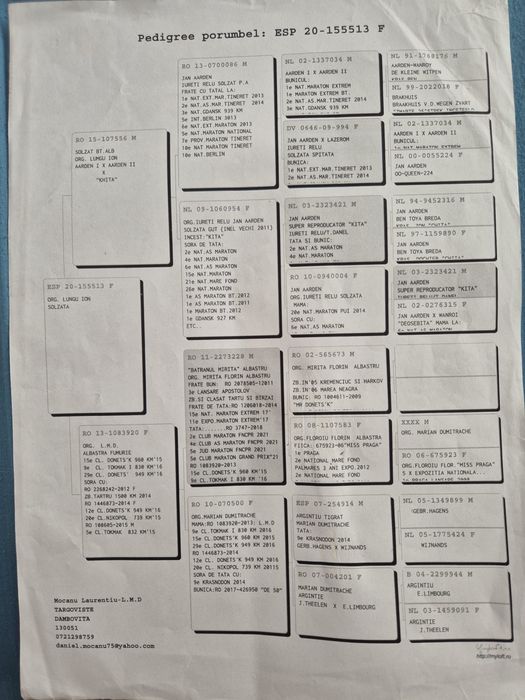 Pedigree porumbel: ESP 20-155513 F
ESP 20-155513 F
ORG. LUNGU ION
SOLZATA
RO 15-107556 M
SOLZAT BT.ALB
ORG. LUNGU ION
AARDEN I X AARDEN II
X
"KHITA"
RO 13-1083920 F
ORG. L.M.D
ALBASTRA FUMURIE
15e CL. DONETS'K 960 KM'15
9e CL. TOKMAK I 830 KM'16
29e CL. DONETS' 949 KM'16
SORA CU:
RO 2268242-2012 F
ZB.TARTRU 1500 KM 2014
RO 1446873-2014 F
12e CL. DONETS'K 949 KM'16
20e CL.NIKOPOL 739 KM'15
RO 108605-2015 M
5e CL.TOKMAK 832 KM'15
RO 13-0700086 M
JAN AARDEN
IURETI RELU SOLZAT P.A
FRATE CU TATAL LA:
1e NAT.EXT MAR.TINERET 2013
2e NAT.AS.MAR.TINERET 2014
3e NAT.GDANSK 939 KM
5e INT.BERLIN 3013
6e NAT.EXT MARATON 2013
5e NAT.MARATON NATIONAL
7e PROV.MARATON TINERET
10e NAT MARATON TINERET
10e NAT.BERLIN
NL 09-1060954 F
ORG.IURETI RELU JAN AARDEN
SOLZATA GUT (INEL VECHI 2011)
INCEST:"KITA"
SORA DE TATA:
2e NAT.AS MARATON
4e NAT.MARATON
6e NAT.AS MARATON
15e NAT.MARATON
21e NAT.MARE FOND
26e NAT.MARATON
1e AS MARATON BT.2012
1e AS MARATON BT.2011
1e MARATON BT.2012
1e GDANSK 927 KM
ETC..
RO 11-2273228 M
"BATRANUL MIRITA" ALBASTRU
ORG. MIRITA FLORIN ALBASTRU
FRATE BUN: RO 2078506-12011
3e LANSARE APOSTOLOV
ZB.SI CLASAT TARTU SI BIRZAI
FRATE DE TATA:RO 1206018-2014
15e NAT. MARATON EXTREM 17'
11e EXPO.MARATON EXTREM'17
TATA.......RO 3747-2018
2e CLUB MARATON FNCPR 2021
4e CLUB AS MARATON FNCPR 2021
5e JUD MARATON FNCPR 2021
5e CLUB MARATON GRAND PRIX"21
RO 1083920-2013
15e CL.DONETS'K 960 KM'15
9e CL.TOKMAK I 830 KM'16
RO 10-070500 F
ORG.MARIAN DUMITRACHE
MAMA:RO 1083920-2013: L.M.D
9e CL.TOKMAK I 830 KM 2016
15e CL.DONETS'K 960 KM 2015
29e CL. DONETS'K 949 KM 2016
RO 1446873-2014
12e CL. DONETS'K 949 KM 2016
20e CL. NIKOPOL 739 KM 20115
SORA DE TATA CU:
9e KRASNODON 2014
BUNICA:RO 2017-426950 "DE 50"
NL 02-1337034 M
AARDEN I X AARDEN II
BUNICUL:
1e NAT.MARATON EXTREM
1e MARATON EXTREM BT.
2e NAT.AS.MAR.TINERET 2014
3e NAT.GDANSK 939 KM
DV 0646-09-994 F
JAN AARDEN X LAZEROM
IURETI RELU
SOLZATA SPITATA
BUNICA:
1e NAT.EXT MAR.TINERET 2013
2e NAT.AS.MAR.TINERET 2014
NL 03-2323421 M
JAN AARDEN
SUPER REPRODUCATOR "KITA"
IURETI RELU/T.DANEL
TATA SI BUNIC:
2e NAT.AS MARATON
4e NAT.MARATON
RO 10-0940004 F
JAN AARDEN
ORG.IURETI RELU SOLZATA
MAMA:
20e NAT.MARATON PUI 2014
SORA CU:
6e NAT.AS MARATON
RO 02-565673 M
ORG. MIRITA FLORIN ALBASTRU
ZB.IN'05 KREMENCIUC SI HARKOV
ZB.IN'06 MAREA NEAGRA
BUNIC: RO 1004611-2009
"MR DONETS'K"
RO 08-1107583 F
ORG.FLOROIU FLORIN ALBASTRA
FIICA: 675923-06"MISS PRAGA"
1e PRAGA
2e NATIONAL MARE FOND
PALMARES 3 ANI EXPO.2012
2e NATIONAL MARE FOND
ESP 07-254914 M
ARGINTIU TIGRAT
MARIAN DUMITRACHE
TATA:
9e KRASNODON 2014
GERB.HAGENS X WIJNANDS
RO 07-004201 F
MARIAN DUMITRACHE
ARGINTIE
J.THEELEN X E.LIMBOURG
NL 91-1760176 M
AARDEN-WANROY
DE KLEINE WITPEN
NL 99-2022018 F
BRAKHUIS
BRAAKHUIS V.D.WEGEN ZWART
NL 02-1337034 M
AARDEN I X AARDEN II
BUNICUL:
NL 00-0055224 F
JAN AARDEN
OO-QUEEN-224
NL 94-9452316 M
JAN AARDEN
BEN TOYA BREDA
NL 97-1159890 F
JAN AARDEN
BEN TOYA BREDA
NL 03-2323421 M
JAN AARDEN
SUPER REPRODUCATOR "KITA"
NL 02-0276315 F
JAN AARDEN X WANROI
"DEOSEBITA" MAMA LA:
XXXX M
ORG. MARIAN DUMITRACHE
RO 06-675923 F
ORG.FLOROIU FLOR."MISS PRAGA"
5 X EXPOZITIA NATIONALA...
NL 05-1349899 M
GEBR.HAGENS
NL 05-1775424 F
WIJNANDS
B 04-2299944 M
ARGINTIU
E.LIMBOURG
NL 03-1459091 F
ARGINTIE
J.THEELEN
Mocanu Laurentiu-L.M.D
TARGOVISTE
DAMBOVITA
130051
0721298759
daniel.mocanu75@yahoo.com
http://myloft.ro